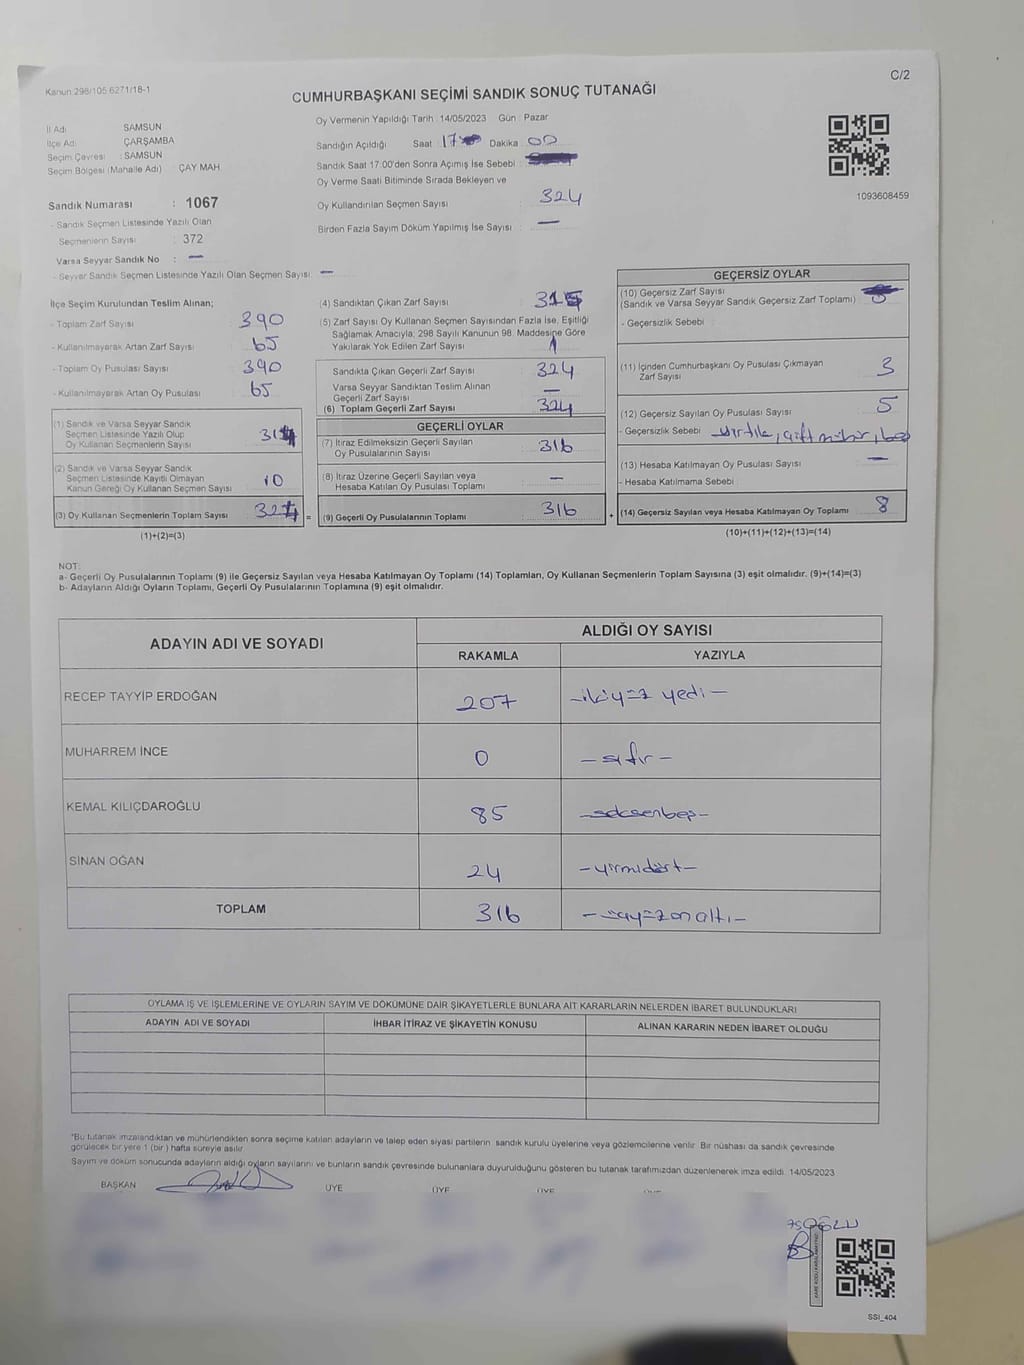 Kanun 298/105 6271/18-1
C/2
CUMHURBAŞKANI SEÇİMİ SANDIK SONUÇ TUTANAĞI
İl Adı SAMSUN
İlçe Adı ÇARŞAMBA
Seçim Çevresi : SAMSUN
Seçim Bölgesi (Mahalle Adı) ÇAY MAH
Sandık Numarası : 1067
- Sandık Seçmen Listesinde Yazılı Olan
Seçmenlerin Sayısı : 372
Varsa Seyyar Sandık No : —
- Seyyar Sandık Seçmen Listesinde Yazılı Olan Seçmen Sayısı : —
Oy Vermenin Yapıldığı Tarih : 14/05/2023 Gün : Pazar
Sandığın Açıldığı Saat : 17 Dakika : 00
Sandık Saat 17.00'den Sonra Açılmış İse Sebebi :
Oy Verme Saati Bitiminde Sırada Bekleyen ve
Oy Kullandırılan Seçmen Sayısı : 324
Birden Fazla Sayım Döküm Yapılmış İse Sayısı : —
1093608459
İlçe Seçim Kurulundan Teslim Alınan;
- Toplam Zarf Sayısı : 390
- Kullanılmayarak Artan Zarf Sayısı : 65
- Toplam Oy Pusulası Sayısı : 390
- Kullanılmayarak Artan Oy Pusulası : 65
(1) Sandık ve Varsa Seyyar Sandık
Seçmen Listesinde Yazılı Olup
Oy Kullanan Seçmenlerin Sayısı : 314
(2) Sandık ve Varsa Seyyar Sandık
Seçmen Listesinde Kayıtlı Olmayan
Kanun Gereği Oy Kullanan Seçmen Sayısı : 10
(3) Oy Kullanan Seçmenlerin Toplam Sayısı : 324 =
(1)+(2)=(3)
(4) Sandıktan Çıkan Zarf Sayısı :
(5) Zarf Sayısı Oy Kullanan Seçmen Sayısından Fazla İse, Eşitliği
Sağlamak Amacıyla; 298 Sayılı Kanunun 98. Maddesine Göre
Yakılarak Yok Edilen Zarf Sayısı : 1
Sandıkta Çıkan Geçerli Zarf Sayısı : 324
Varsa Seyyar Sandıktan Teslim Alınan
Geçerli Zarf Sayısı : —
(6) Toplam Geçerli Zarf Sayısı : 324
GEÇERLİ OYLAR
(7) İtiraz Edilmeksizin Geçerli Sayılan
Oy Pusulalarının Sayısı : 316
(8) İtiraz Üzerine Geçerli Sayılan veya
Hesaba Katılan Oy Pusulası Toplamı : —
(9) Geçerli Oy Pusulalarının Toplamı : 316 +
GEÇERSİZ OYLAR
(10) Geçersiz Zarf Sayısı
(Sandık ve Varsa Seyyar Sandık Geçersiz Zarf Toplamı) :
- Geçersizlik Sebebi :
(11) İçinden Cumhurbaşkanı Oy Pusulası Çıkmayan
Zarf Sayısı : 3
(12) Geçersiz Sayılan Oy Pusulası Sayısı : 5
- Geçersizlik Sebebi : yırtık, çift mühür, boş
(13) Hesaba Katılmayan Oy Pusulası Sayısı : —
- Hesaba Katılmama Sebebi :
(14) Geçersiz Sayılan veya Hesaba Katılmayan Oy Toplamı : 8
(10)+(11)+(12)+(13)=(14)
NOT:
a- Geçerli Oy Pusulalarının Toplamı (9) ile Geçersiz Sayılan veya Hesaba Katılmayan Oy Toplamı (14) Toplamları, Oy Kullanan Seçmenlerin Toplam Sayısına (3) eşit olmalıdır. (9)+(14)=(3)
b- Adayların Aldığı Oyların Toplamı, Geçerli Oy Pusulalarının Toplamına (9) eşit olmalıdır.
ADAYIN ADI VE SOYADI ALDIĞI OY SAYISI
RAKAMLA YAZIYLA
RECEP TAYYİP ERDOĞAN 207 -ikiyüz yedi-
MUHARREM İNCE 0 -sıfır-
KEMAL KILIÇDAROĞLU 85 -seksenbeş-
SİNAN OĞAN 24 -yirmidört-
TOPLAM 316 -üçyüzonaltı-
OYLAMA İŞ VE İŞLEMLERİNE VE OYLARIN SAYIM VE DÖKÜMÜNE DAİR ŞİKAYETLERLE BUNLARA AİT KARARLARIN NELERDEN İBARET BULUNDUKLARI
ADAYIN ADI VE SOYADI İHBAR İTİRAZ VE ŞİKAYETİN KONUSU ALINAN KARARIN NEDEN İBARET OLDUĞU
*Bu tutanak imzalandıktan ve mühürlendikten sonra seçime katılan adayların ve talep eden siyasi partilerin sandık kurulu üyelerine veya gözlemcilerine verilir. Bir nüshası da sandık çevresinde
görülecek bir yere 1 (bir) hafta süreyle asılır.
Sayım ve döküm sonucunda adayların aldığı oyların sayılarını ve bunların sandık çevresinde bulunanlara duyurulduğunu gösteren bu tutanak tarafımızdan düzenlenerek imza edildi. 14/05/2023
BAŞKAN ÜYE ÜYE ÜYE ÜYE
SSI_404